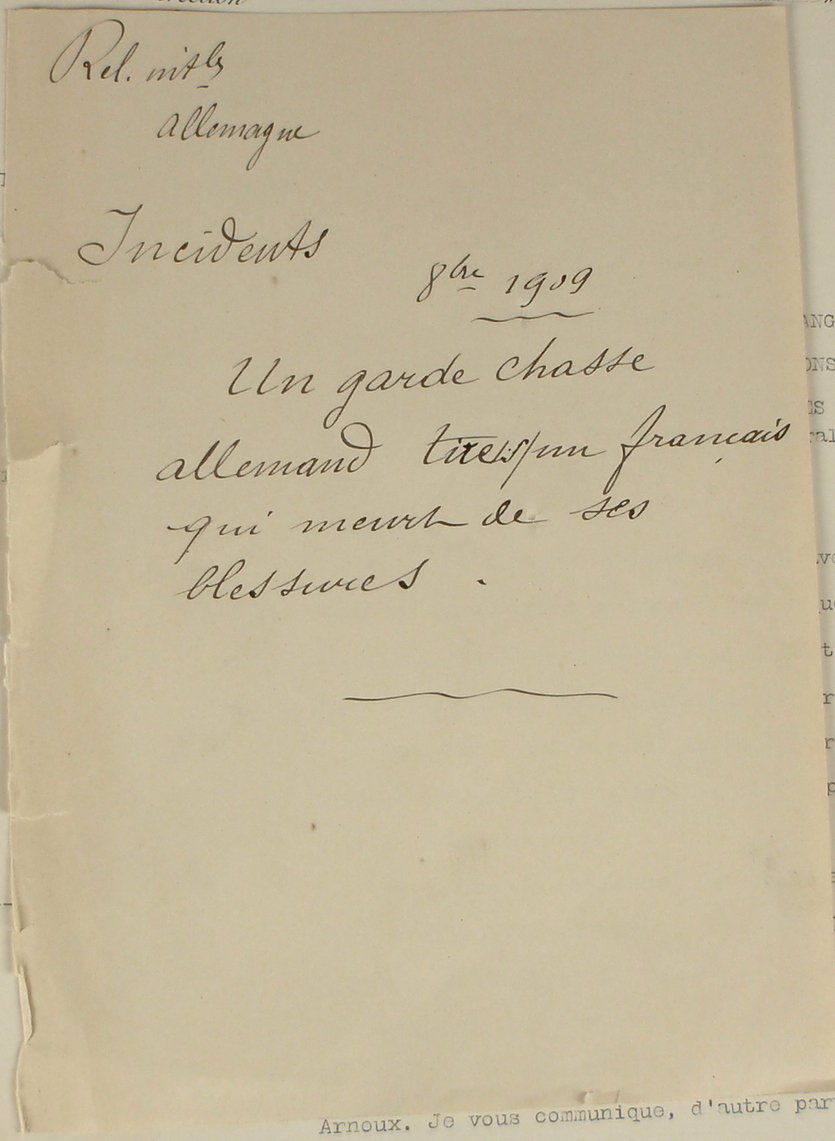 Rel. intles
Allemagne
Incidents
8bre 1909
Un garde chasse
allemand tire s/ un français
qui meurt de ses
blessures.
Arnoux. Je vous communique, d'autre par